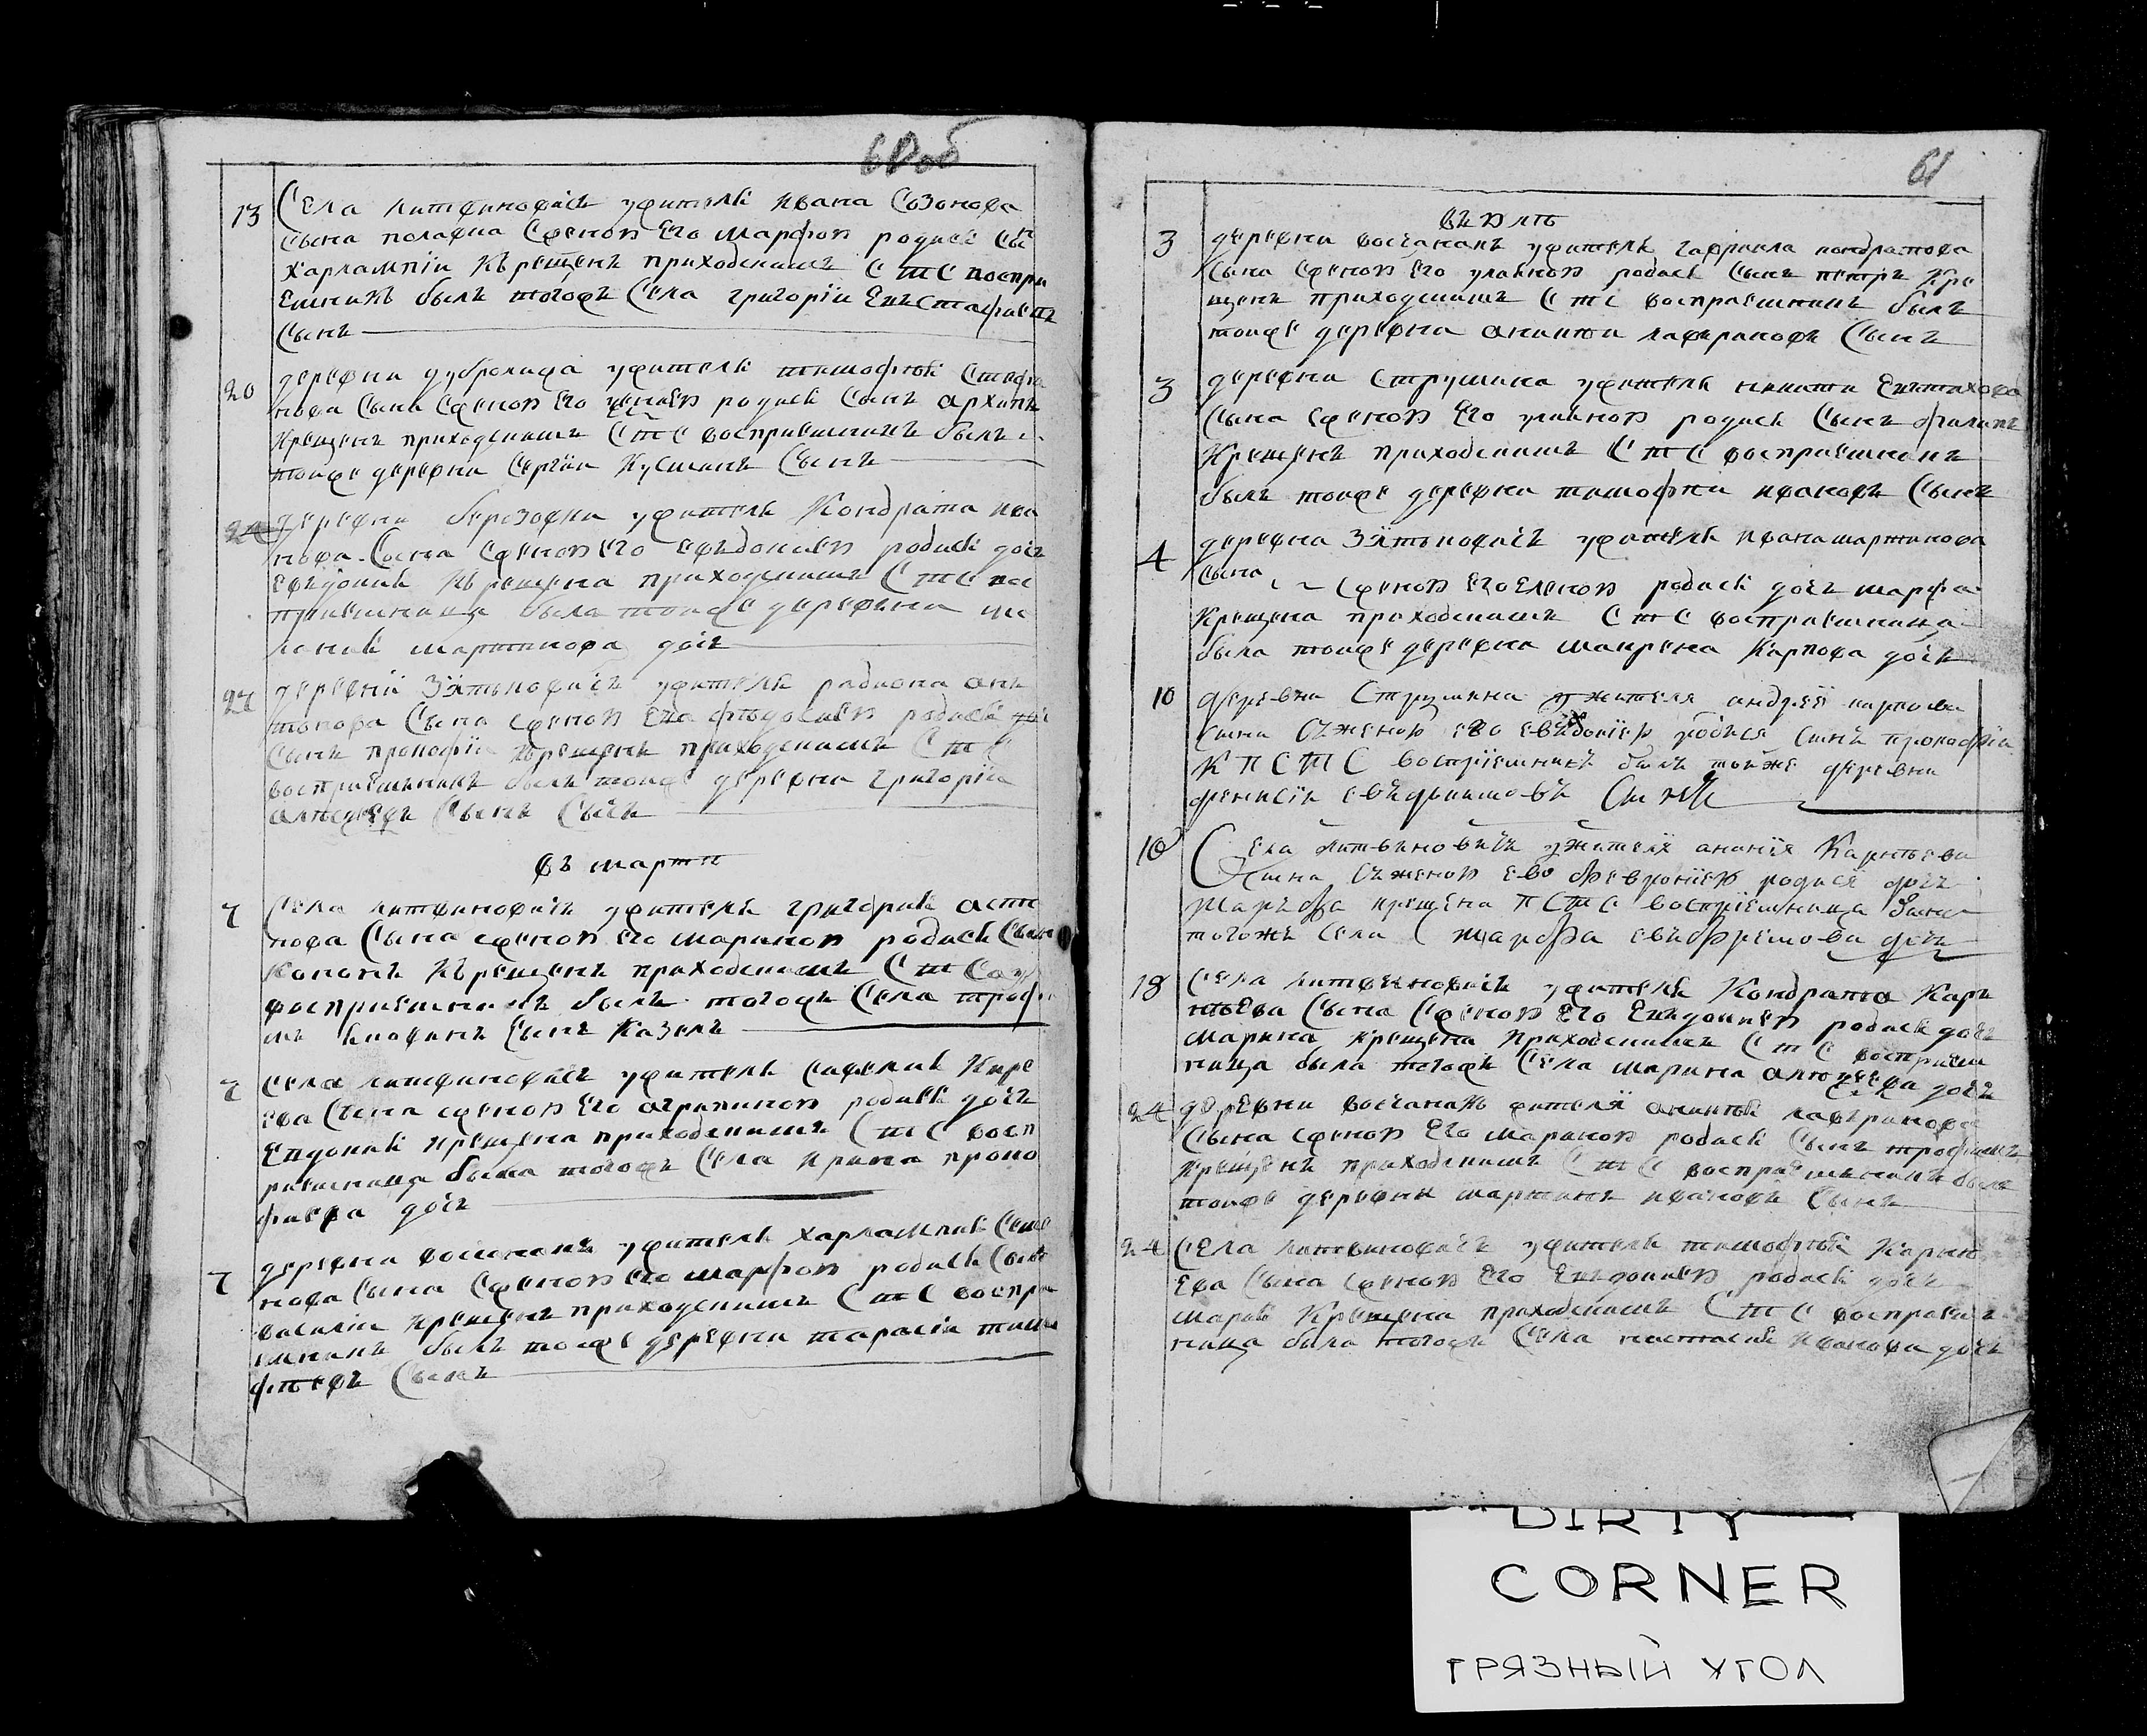 60об
13 Села литвиновичъ ужителя ивана Созонова
сына полавца Сженою Его марфою родисе сы
Харлампїи Кърещенъ приходскимъ С т С воспри
Емникъ былъ тогожъ Села григорїи Евстафиевъ
Сынъ
20 деревни дубролива ужителя тимофѣя Стефа
нова Сына Сженою Его родисе Сынъ архипъ
Крещенъ приходскимъ С т С восприемникъ былъ
тоиже деревни Сергїи Кузминъ Сынъ
24 деревни березовки ужителя Кондрата ива
нова Сына Сженою Его Евъдокиею родисе дочъ
Евъдокия Кърещена приходскимъ С т С вос
приемница была тоиже деревъни ма
лания мартинова дочъ
27 деревнїи Зятьковичъ ужителя радиона ан
тонова Сына Сженою Ево фѣодосиею родисе
Сынъ прокофїи Кърещенъ приходскимъ С т С
восприемникъ былъ тоиже деревни григорїи
алексеевъ Сынъ
въ мартѣ
7 Села литвиновичъ ужителя григория
нова Сына сженою Его мариною родисе Сынъ
Кононъ Кърещенъ приходскимъ С т С
восприемникъ былъ тогожъ Села трофи
мъ Сынъ Казелъ
7 Села литвиновичъ ужителя савелия Кире
ева Сына сженою Его агрипиною родисе дочъ
Евдокия Крещена приходскимъ С т С восп
риемница была тогожъ Села ирина проко
фиева дочъ
7 деревни восчанакъ ужителя харлампия Семе
нова Сына Сженою Его марфою родисе Сынъ
василїи Крещенъ приходскимъ С т С воспри
емникъ былъ тоиже деревни тарасїи тимо
фѣевъ Сынъ
61
въ Юлѣ
3 деревни восчанакъ ужителя гавриила кондратова
Сына Сженою Его улияною родисе Сынъ петръ Кре
щенъ приходскимъ С т С восприемникъ былъ
тоиже деревни аникеи лавриновъ Сынъ
3 деревни Струмина ужителя никити Евтихова
Сына Сженою Его улияною родисе Сынъ филипъ
Крещенъ приходскимъ С т С восприемникъ
былъ тоиже деревни тимофѣи ивановъ Сынъ
4 деревни Зятьковичъ ужителя ивана мартинова
Сына Сженою Его Еленою родисе дочъ марфа
Крещена приходскимъ С т С восприемница
была тоиже деревни маврена Карпова дочъ
10 деревни Струмина ужителя андрея карпова
сына Съженою его евъдокїею родися синъ прокофїи
К П С Т С воспрїемникъ былъ тойже деревни
денисїи евъдокимовъ Синъ
10 Села литвиновичъ ужителя ананїя Карпъева
Сина Съженою ево февронїею родися дочъ
марфа крещена П С т С воспрїемница была
тогожъ села марфа евъфремова дочъ
18 Села литвиновичъ ужителя Кондрата Каръ
пъева Сына Сженою Его Евъдокиею родисе дочъ
марина Крещена Приходскимъ С т С восприем
ница была тогожъ Села марина алексеева дочъ
24 деревни восчанакъ жителя аникѣя лавъринова
Сына Сженою Его мариною родисе Сынъ трофимъ
Крещенъ приходскимъ С т С восприемникъ былъ
тоиже деревни мартинъ ивановъ Сынъ
24 Села литвиновичъ ужителя тимофѣя Карпъ
ева Сына Сженою Его Евъдокиею родисе дочъ
мария Крещена приходскимъ С т С восприем
ница была тогожъ Села настасия иванова дочъ
DIRTY
CORNER
ГРЯЗНЫЙ УГОЛ